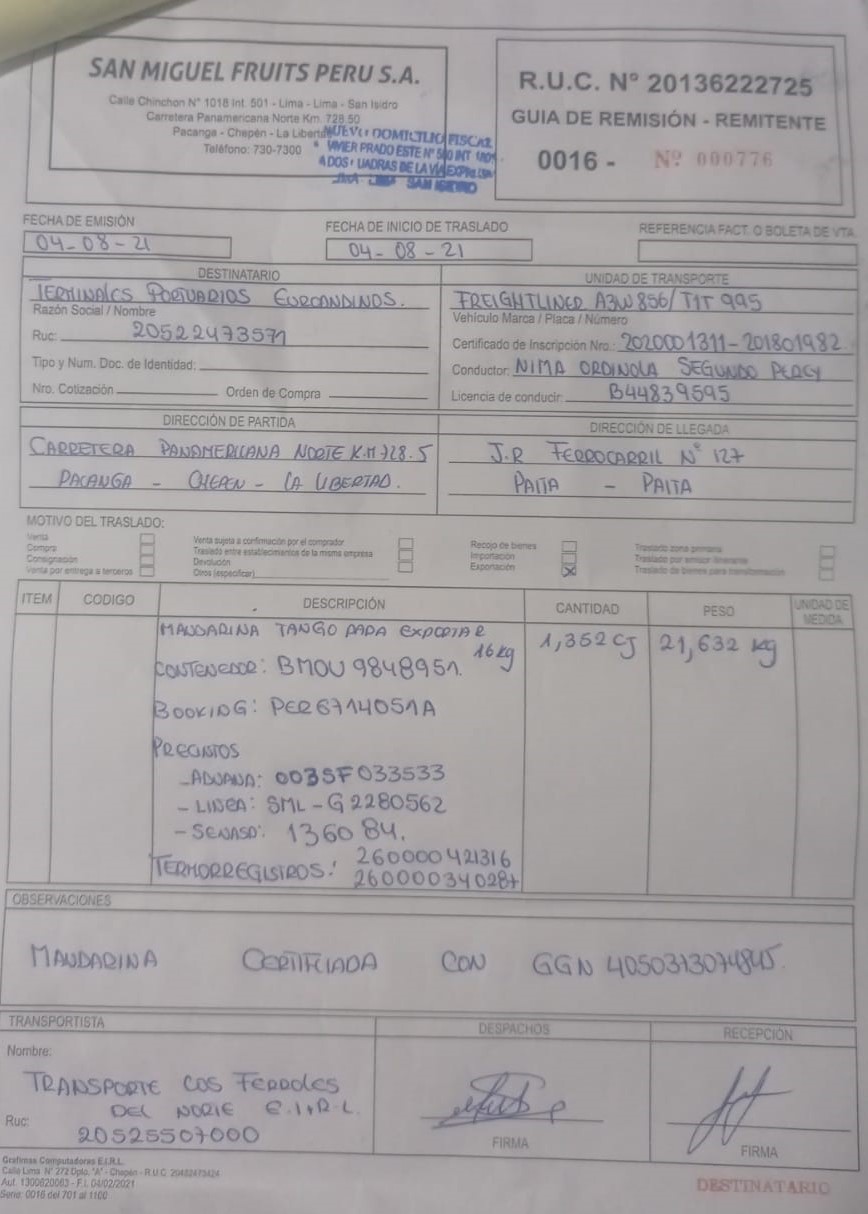 SAN MIGUEL FRUITS PERU S.A.
Calle Chinchon N° 1018 Int. 501 - Lima - Lima - San Isidro
Carretera Panamericana Norte Km. 728.50
Pacanga - Chepén - La Libertad
Teléfono: 730-7300
NUEVO DOMICILIO FISCAL
JAVIER PRADO ESTE N° 560 INT
SAN ISIDRO
R.U.C. N° 20136222725
GUIA DE REMISIÓN - REMITENTE
0016 - Nº 000776
FECHA DE EMISIÓN
04-08-21
FECHA DE INICIO DE TRASLADO
04-08-21
REFERENCIA FACT. O BOLETA DE VTA.
DESTINATARIO
TERMINALES PORTUARIOS EUROANDINOS.
Razón Social / Nombre
Ruc: 20522473571
Tipo y Num. Doc. de Identidad:
Nro. Cotización Orden de Compra
UNIDAD DE TRANSPORTE
FREIGHTLINER A3W856/T1T 995
Vehículo Marca / Placa / Número
Certificado de Inscripción Nro.: 2020001311-201801982
Conductor: NIMA ORDINOLA SEGUNDO PERCY
Licencia de conducir: B44839595
DIRECCIÓN DE PARTIDA
CARRETERA PANAMERICANA NORTE K.M 728.5
PACANGA - CHEPEN - LA LIBERTAD.
DIRECCIÓN DE LLEGADA
J.R FERROCARRIL N° 127
PAITA - PAITA
MOTIVO DEL TRASLADO:
Venta
Compra
Consignación
Venta por entrega a terceros
Venta sujeta a confirmación por el comprador
Traslado entre establecimientos de la misma empresa
Devolución
Otros (especificar)
Recojo de bienes
Importación
Exportación X
Traslado zona primaria
Traslado por emisor itinerante
Traslado de bienes para transformación
ITEM CODIGO DESCRIPCIÓN CANTIDAD PESO UNIDAD DE MEDIDA
MANDARINA TANGO PARA EXPORTAR 1,352 CJ 21,632 kg
16 kg
CONTENEDOR: BMOU 9848951.
BOOKING: PER6714051A
PRECINTOS
- ADUANA: 0035F033533
- LINEA: SML-G2280562
- SENASA: 136084.
TERMORREGISTROS: 260000421316
OBSERVACIONES
MANDARINA CERTIFCIADA CON GGN
TRANSPORTISTA
Nombre:
TRANSPORTE LOS FERROLES
DEL NORTE E.I.R.L.
Ruc: 20525507000
DESPACHOS
FIRMA
RECEPCIÓN
FIRMA
Grafimas Computadoras E.I.R.L.
Calle Lima N° 272 Dpto. "A" - Chepén - R.U.C. 20482473424
Aut. 1300620063 - F.I. 04/02/2021
Serie: 0016 del 701 al 1100
DESTINATARIO